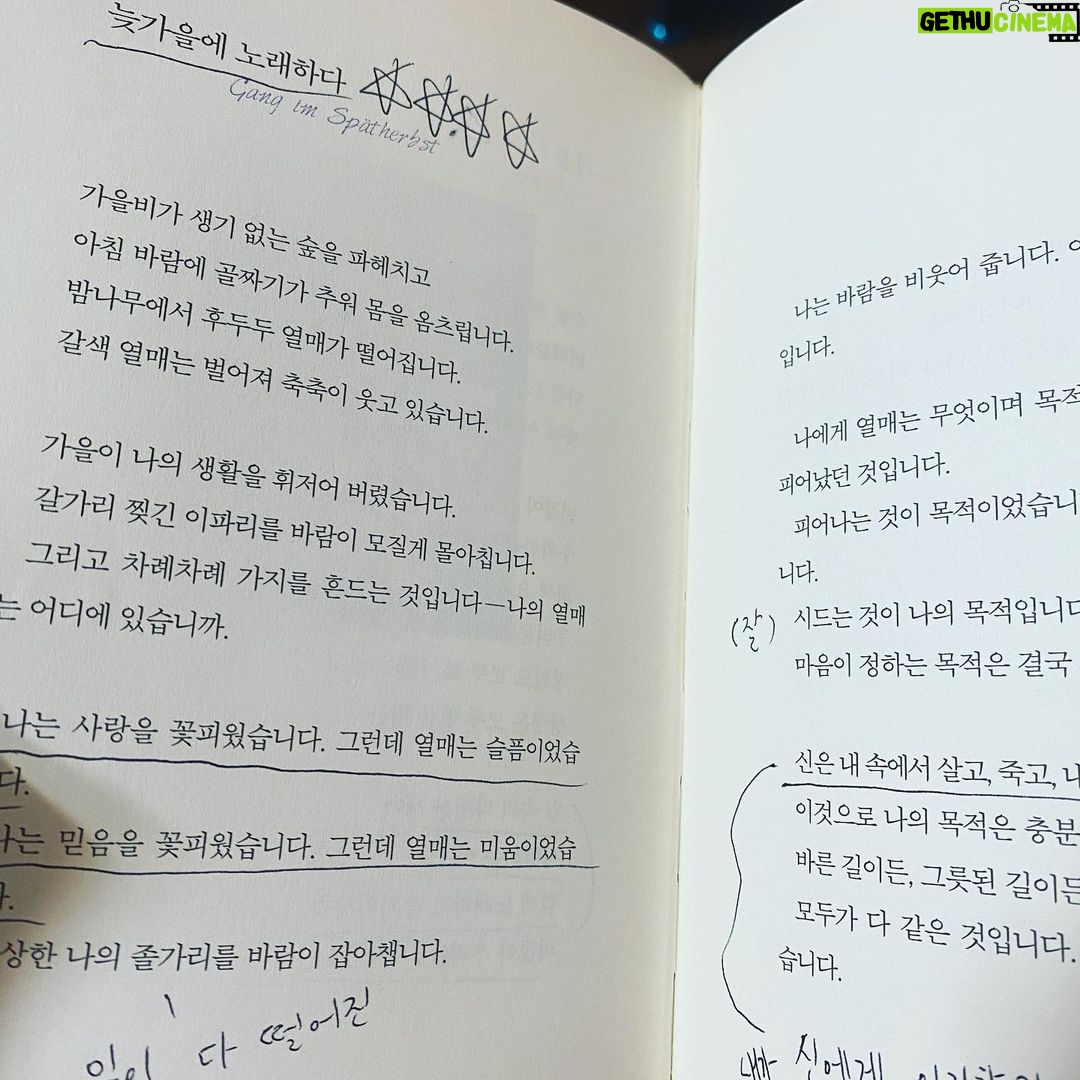 GETHUCINEMA
늦가을에 노래하다
Gang im Spätherbst
가을비가 생기 없는 숲을 파헤치고
아침 바람에 골짜기가 추워 몸을 옴츠립니다.
밤나무에서 후두두 열매가 떨어집니다.
갈색 열매는 벌어져 축축이 웃고 있습니다.
가을이 나의 생활을 휘저어 버렸습니다.
갈가리 찢긴 이파리를 바람이 모질게 몰아칩니다.
그리고 차례차례 가지를 흔드는 것입니다—나의 열매
는 어디에 있습니까.
나는 사랑을 꽃피웠습니다. 그런데 열매는 슬픔이었습
다.
나는 믿음을 꽃피웠습니다. 그런데 열매는 미움이었습
다.
상한 나의 졸가리를 바람이 잡아챕니다.
잎이 다 떨어진
나는 바람을 비웃어 줍니다.
입니다.
나에게 열매는 무엇이며 목적
피어났던 것입니다.
피어나는 것이 목적이었습니
니다.
(잘) 시드는 것이 나의 목적입니다
마음이 정하는 목적은 결국
신은 내 속에서 살고, 죽고, 나
이것으로 나의 목적은 충분
바른 길이든, 그릇된 길이든
모두가 다 같은 것입니다.
습니다.
내가 신에게